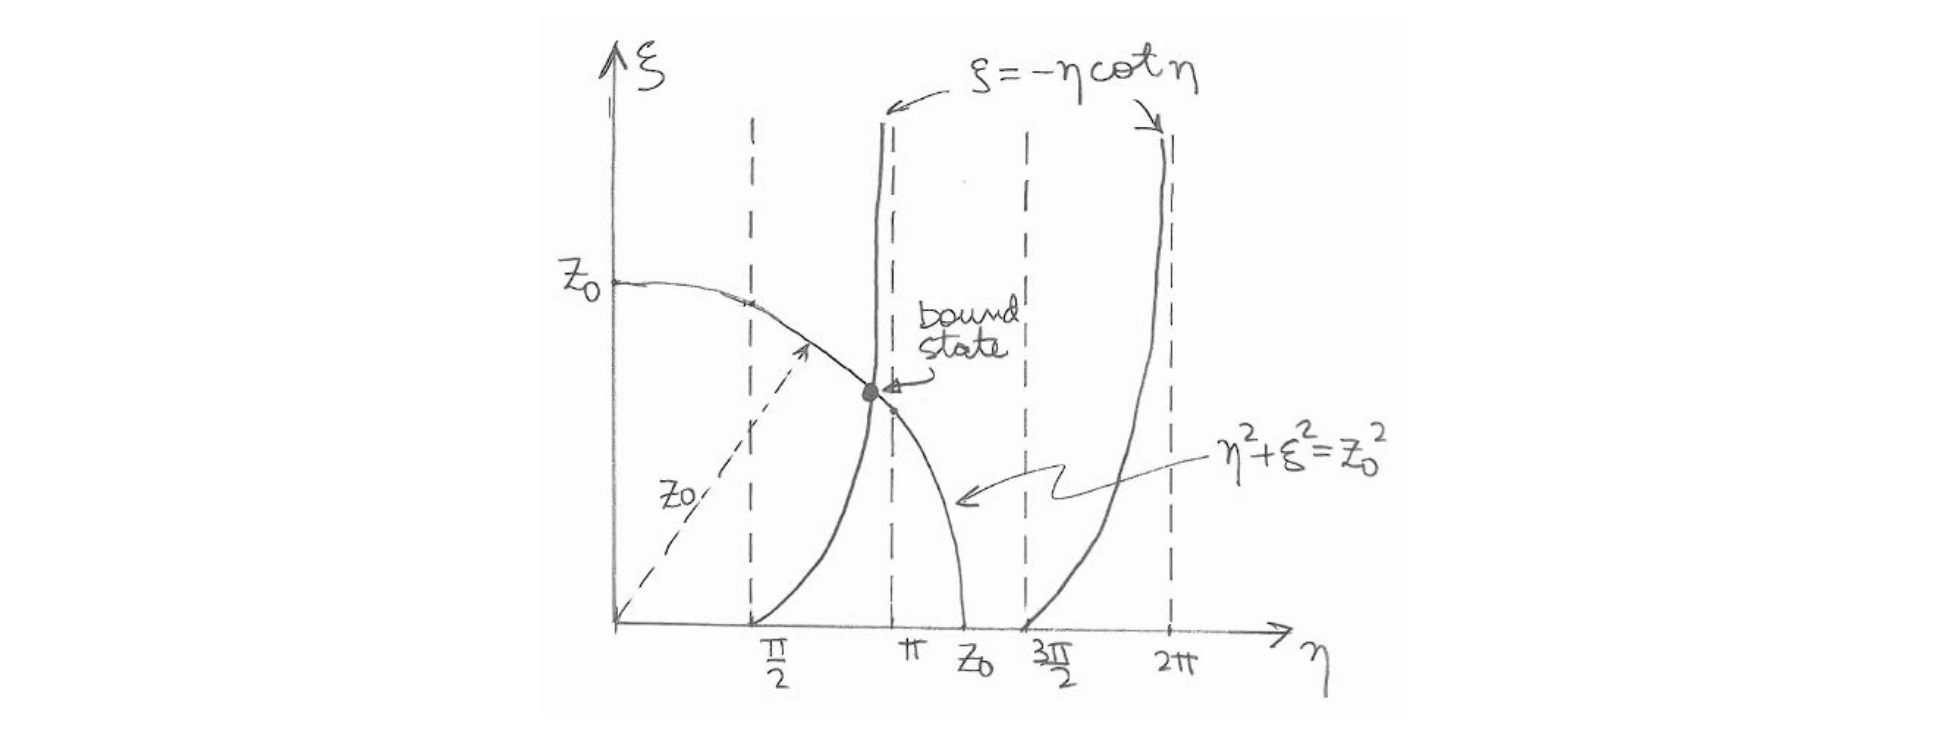 ξ
ξ = -η cot η
Z₀
bound
state
Z₀
η² + ξ² = Z₀²
π/2
π
Z₀
3π/2
2π
η